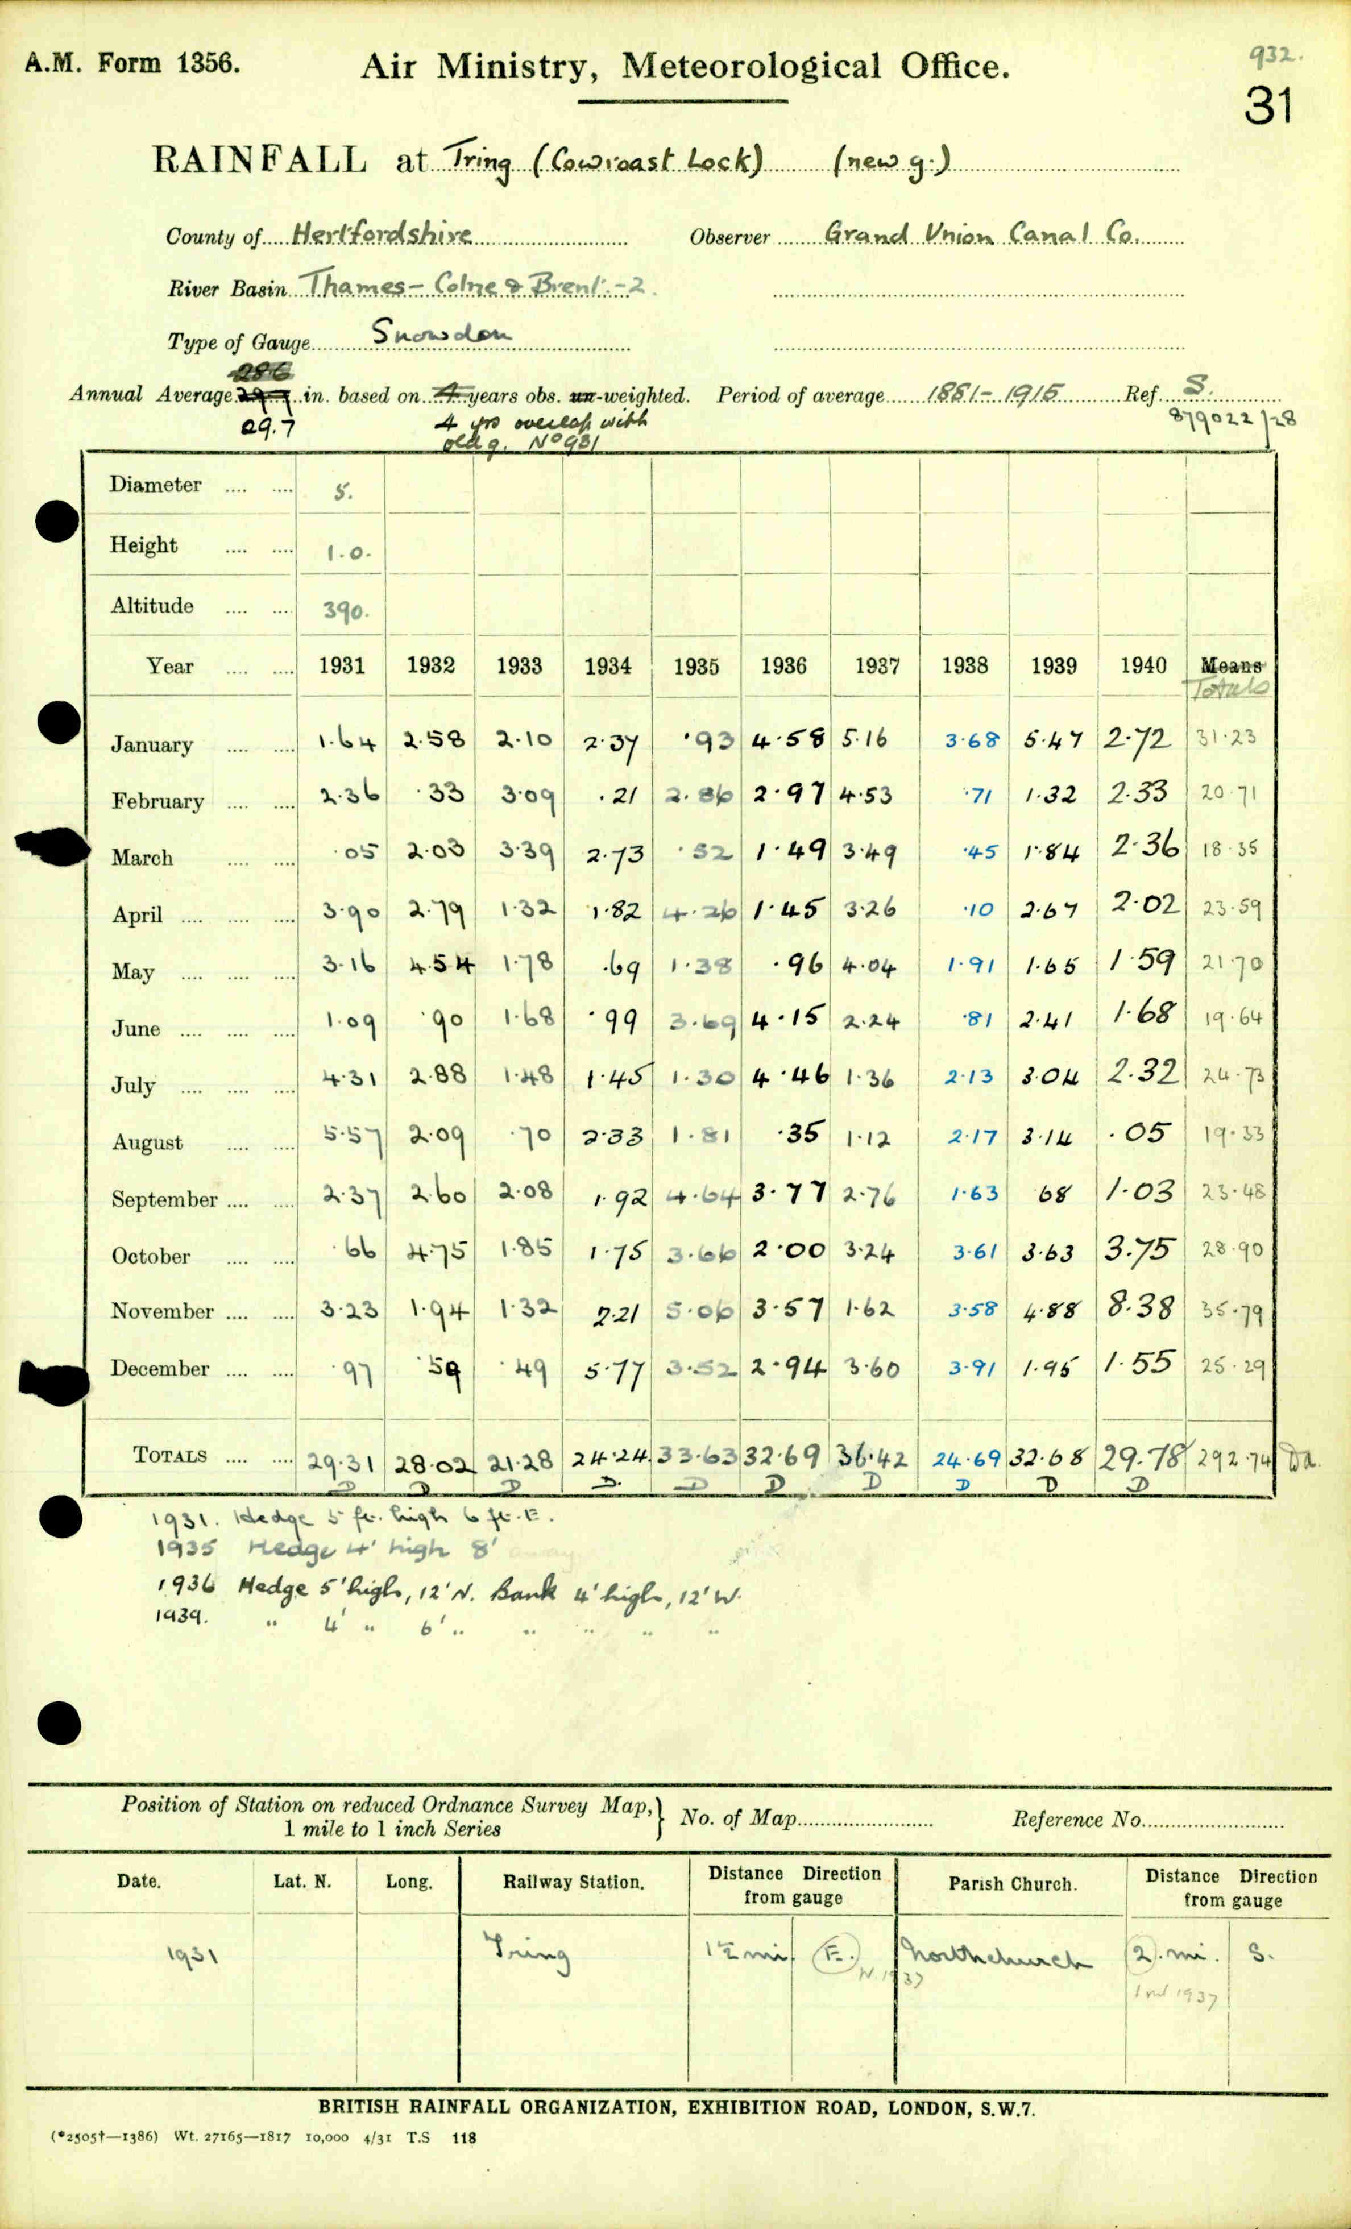 A.M. Form 1356. Air Ministry, Meteorological Office. 932.
31
RAINFALL at Tring (Cowroast Lock) (new g.)
County of Hertfordshire Observer Grand Union Canal Co.
River Basin Thames - Colne & Brent. - 2.
Type of Gauge Snowdon
286
Annual Average in. based on 4 years obs. un-weighted. Period of average 1881-1915 Ref. S.
29.7 4 yrs overlap with 879022/28
old g. No 931
Diameter .... .... 5.
Height .... .... 1.0.
Altitude .... .... 390.
Year .... .... 1931 1932 1933 1934 1935 1936 1937 1938 1939 1940 Means
Totals
January .... .... 1.64 2.58 2.10 2.37 .93 4.58 5.16 3.68 5.47 2.72 31.23
February .... .... 2.36 .33 3.09 .21 2.86 2.97 4.53 .71 1.32 2.33 20.71
March .... .... .05 2.03 3.39 2.73 .52 1.49 3.49 .45 1.84 2.36 18.35
April .... .... .... 3.90 2.79 1.32 1.82 4.26 1.45 3.26 .10 2.67 2.02 23.59
May .... .... .... 3.16 4.54 1.78 .69 1.38 .96 4.04 1.91 1.65 1.59 21.70
June .... .... .... 1.09 .90 1.68 .99 3.69 4.15 2.24 .81 2.41 1.68 19.64
July .... .... .... 4.31 2.88 1.48 1.45 1.30 4.46 1.36 2.13 3.04 2.32 24.73
August .... .... 5.57 2.09 .70 2.33 1.81 .35 1.12 2.17 3.14 .05 19.33
September .... .... 2.37 2.60 2.08 1.92 4.64 3.77 2.76 1.63 68 1.03 23.48
October .... .... .66 4.75 1.85 1.75 3.66 2.00 3.24 3.61 3.63 3.75 28.90
November .... .... 3.23 1.94 1.32 2.21 5.06 3.57 1.62 3.58 4.88 8.38 35.79
December .... .... .97 .59 .49 5.77 3.52 2.94 3.60 3.91 1.95 1.55 25.29
TOTALS .... .... 29.31 28.02 21.28 24.24 33.63 32.69 36.42 24.69 32.68 29.78 292.74 Da.
D D D D. D D D D D D
1931. Hedge 5 ft. high 6 ft. E.
1935 Hedge 4' high 8' away.
1936 Hedge 5' high, 12' N. Bank 4' high, 12' W.
1939. " 4' " 6' " " " " "
Position of Station on reduced Ordnance Survey Map, } No. of Map Reference No.
1 mile to 1 inch Series
Date. Lat. N. Long. Railway Station. Distance Direction Parish Church. Distance Direction
from gauge from gauge
1931 Tring 1½ mi. E. Northchurch 2. mi. S.
N 1937 1 mi 1937
BRITISH RAINFALL ORGANIZATION, EXHIBITION ROAD, LONDON, S.W.7.
(*2505†—1386) Wt. 27165—1817 10,000 4/31 T.S 118